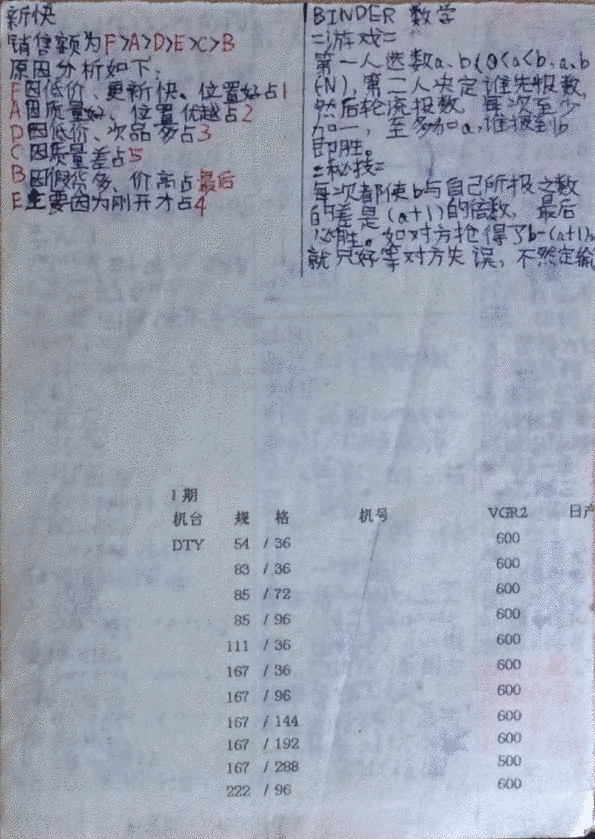 新快
销售额为F>A>D>E>C>B
原因分析如下:
F因低价、更新快、位置好占1
A因质量好、位置优越占2
D因低价、次品多占3
C因质量差占5
B因假货多、价高占最后
E主要因为刚开才占4
BINDER 数学
=游戏=
第一人选数a、b(0<a<b,a、b
∈N),第二人决定谁先报数,
然后轮流报数,每次至少
加一,至多加a,谁报到b
即胜。
=秘技=
每次都使b与自己所报之数
的差是(a+1)的倍数,最后
必胜。如对方抢得了b-(a+1)n
就只好等对方失误,不然定输
1期
机台 规 格 机号 VGR2 日产
DTY 54 / 36 600
83 / 36 600
85 / 72 600
85 / 96 600
111 / 36 600
167 / 36 600
167 / 96 600
167 / 144 600
167 / 192 600
167 / 288 500
222 / 96 600